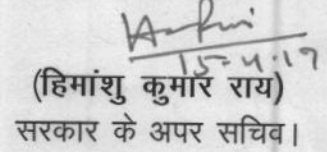 15-4-19
(हिमांशु कुमार राय)
सरकार के अपर सचिव।